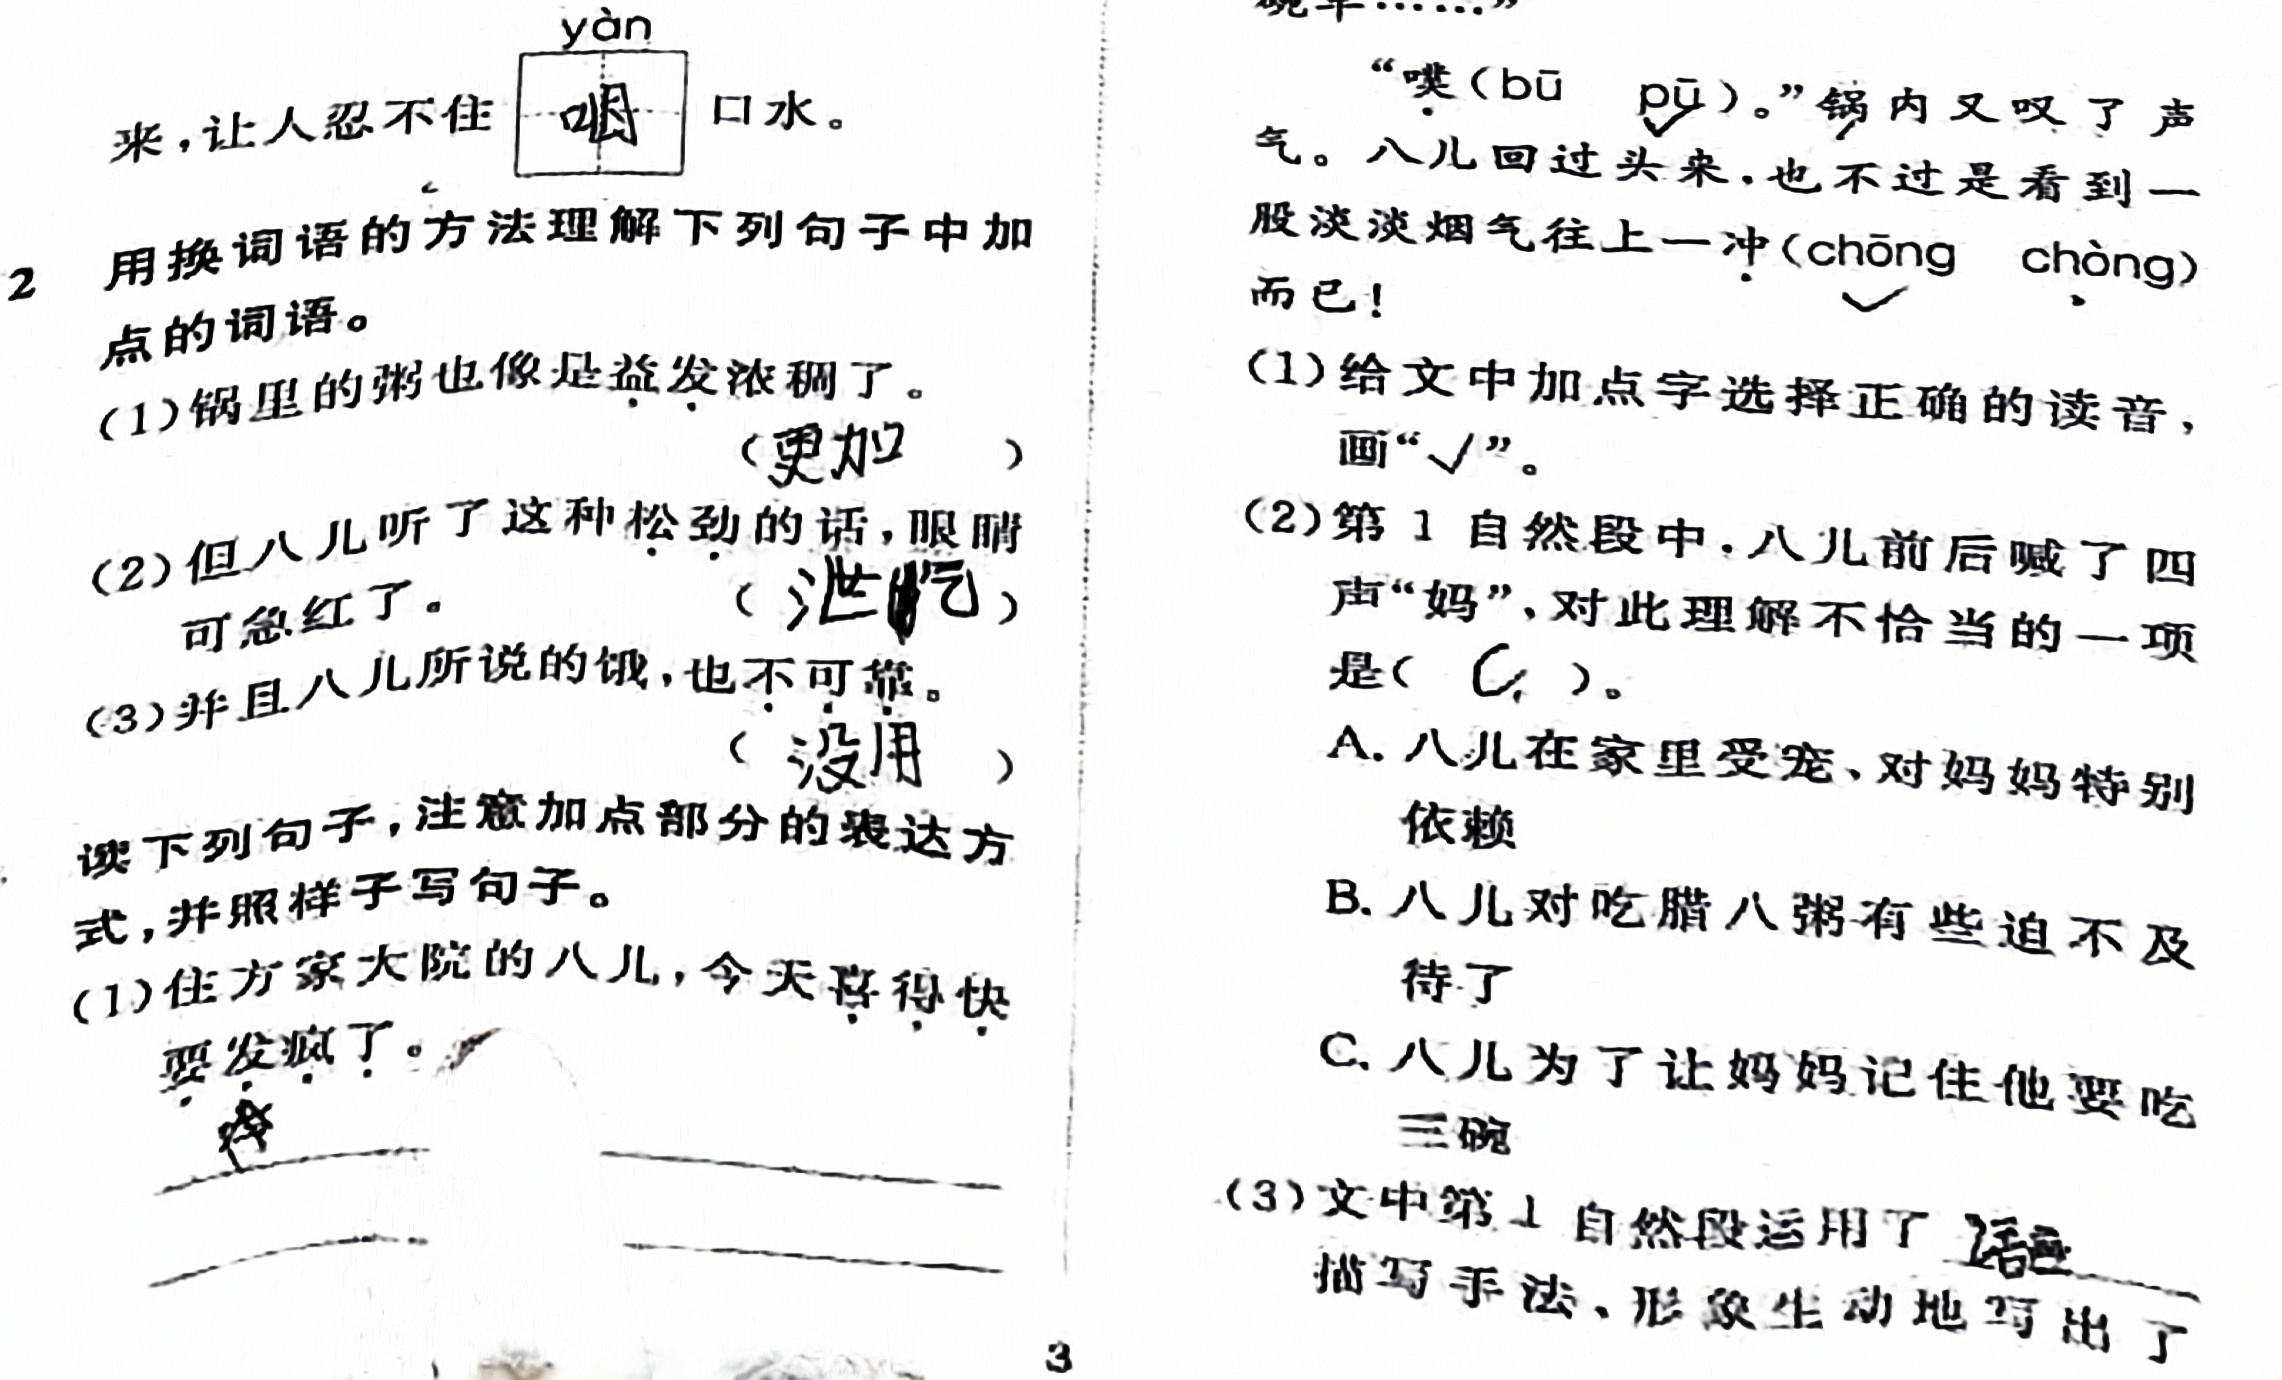 yàn
来，让人忍不住 咽 口水。
2 用换词语的方法理解下列句子中加
点的词语。
(1)锅里的粥也像是益发浓稠了。
(更加)
(2)但八儿听了这种松劲的话，眼睛
可急红了。 (泄气)
(3)并且八儿所说的饿，也不可靠。
(没用)
读下列句子，注意加点部分的表达方
式，并照样子写句子。
(1)住方家大院的八儿，今天喜得快
要发疯了。
3
碗半……”
“噗(bū pū)。”锅内又叹了声
气。八儿回过头来，也不过是看到一
股淡淡烟气往上一冲(chōng chòng)
而已！
(1)给文中加点字选择正确的读音，
画“√”。
(2)第1自然段中，八儿前后喊了四
声“妈”，对此理解不恰当的一项
是( C )。
A. 八儿在家里受宠、对妈妈特别
依赖
B. 八儿对吃腊八粥有些迫不及
待了
C. 八儿为了让妈妈记住他要吃
三碗
(3)文中第1自然段运用了
描写手法、形象生动地写出了